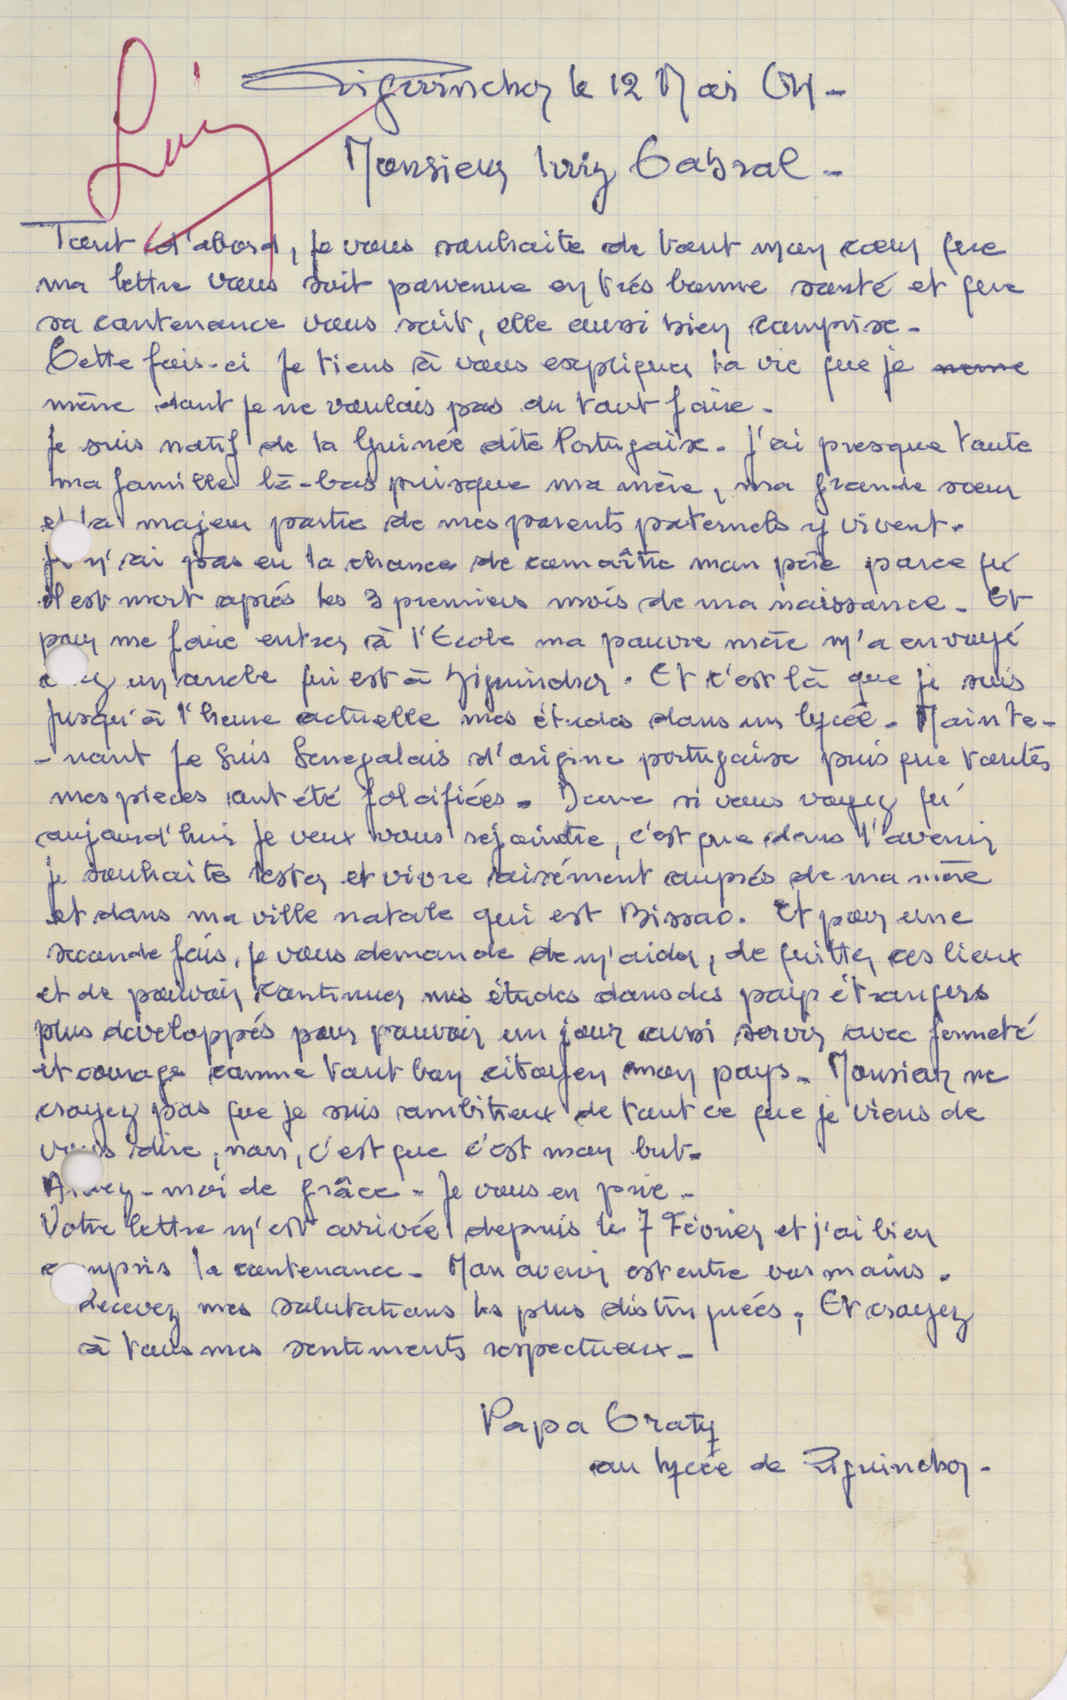 Luiz
Ziguinchor le 12 Mai 64 -
Monsieur Luiz Cabral -
Tout d'abord, je vous souhaite de tout mon cœur que
ma lettre vous soit parvenue en très bonne santé et que
sa contenance vous soit, elle aussi bien comprise -
Cette fois-ci je tiens à vous expliquer la vie que je mene
mène dont je ne voulais pas du tout faire -
Je suis natif de la Guinée dite Portugaise. J'ai presque toute
ma famille là-bas puisque ma mère, ma grande sœur
et la majeur partie de mes parents paternels y vivent.
Je n'ai pas eu la chance de connaître mon père parce qu'
il est mort après les 3 premiers mois de ma naissance - Et
pour me faire entrer à l'Ecole ma pauvre mère m'a envoyé
un oncle qui est à Ziguinchor. Et c'est là que je suis
jusqu'à l'heure actuelle mes études dans un lycée - Mainte-
- nant je suis Senegalais d'origine portugaise puis que toutes
mes pieces ont été falsifiées. Donc si vous voyez qu'
aujourd'hui je veux vous rejoindre, c'est que dans l'avenir
je souhaite rester et vivre aisément auprès de ma mère
et dans ma ville natale qui est Bissao. Et pour une
seconde fois, je vous demande de m'aider, de quitter ces lieux
et de pouvoir continuer mes études dans des pays étrangers
plus développés pour pouvoir un jour aussi servir avec fermeté
et courage comme tout bon citoyen mon pays. Monsieur ne
croyez pas que je suis ambitieux de tout ce que je viens de
vous dire, non, c'est que c'est mon but.
Aidez-moi de grâce - Je vous en prie -
Votre lettre m'est arrivée depuis le 7 Février et j'ai bien
compris la contenance - Mon avenir est entre vos mains.
Recevez mes salutations les plus distinguées, Et croyez
à tous mes sentiments respectueux -
Papa
au lycée de Ziguinchor -